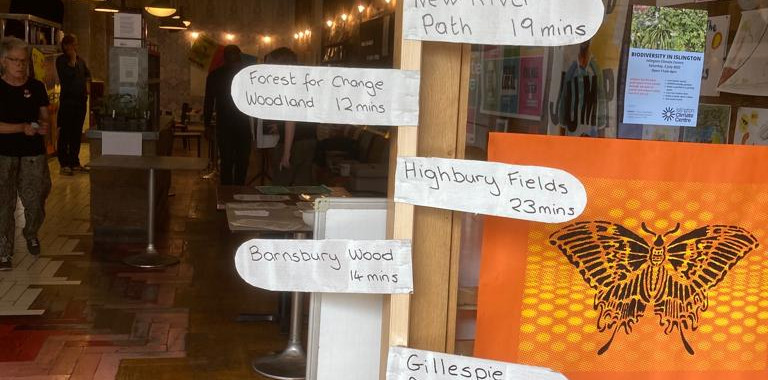 New River
Path 19 mins
Forest for Change
Woodland 12 mins
Highbury Fields
23 mins
Barnsbury Wood
14 mins
Gillespie
BIODIVERSITY IN ISLINGTON
Islington
Climate
Centre
JUMP